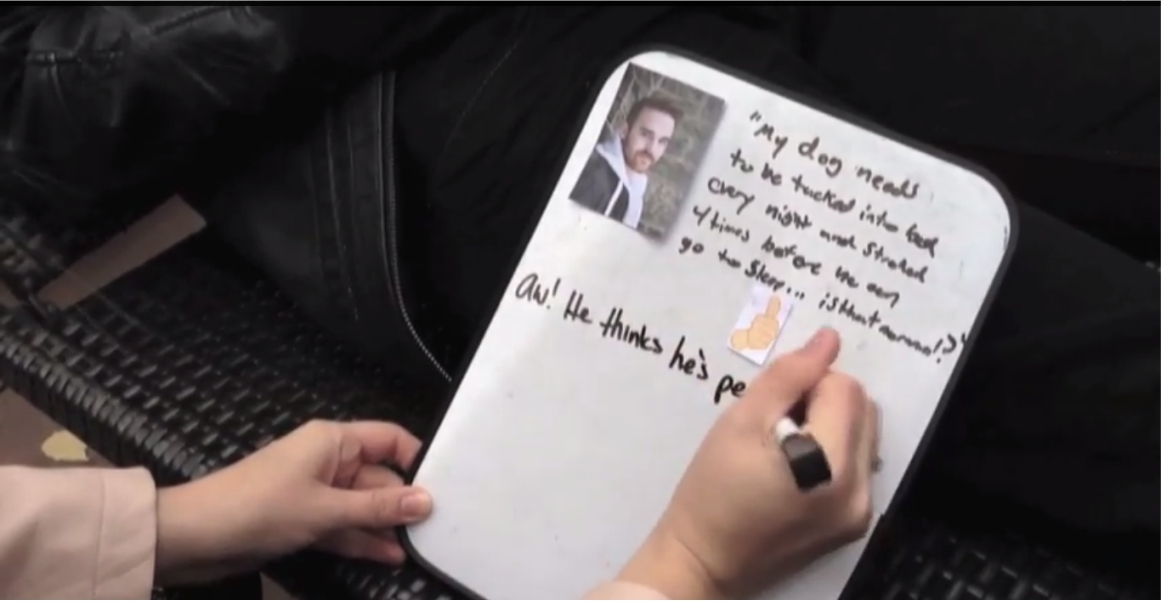 "My dog needs
to be tucked into bed
every night and stroked
4 times before he can
go to sleep... is that normal?"
Aw! He thinks he's pe